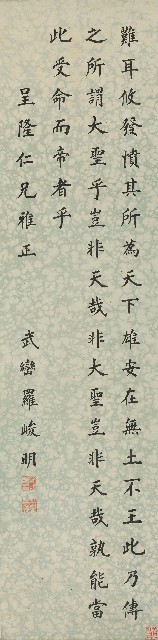 難耳攸發憤其所為天下雄安在無土不王此乃傳
之所謂大聖乎豈非天哉非大聖豈非天哉孰能當
此受命而帝者乎
呈隆仁兄雅正
武巒羅峻明